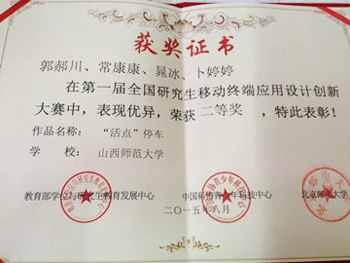 获奖证书
郭郝川、常康康、晁冰、卜婷婷
在第一届全国研究生移动终端应用设计创新
大赛中，表现优异，荣获 二等奖 ，特此表彰！
作品名称：“活点”停车
学 校：山西师范大学
教育部学位与研究生教育发展中心 中国科协青少年科技中心 北京邮电大学
二〇一五年八月